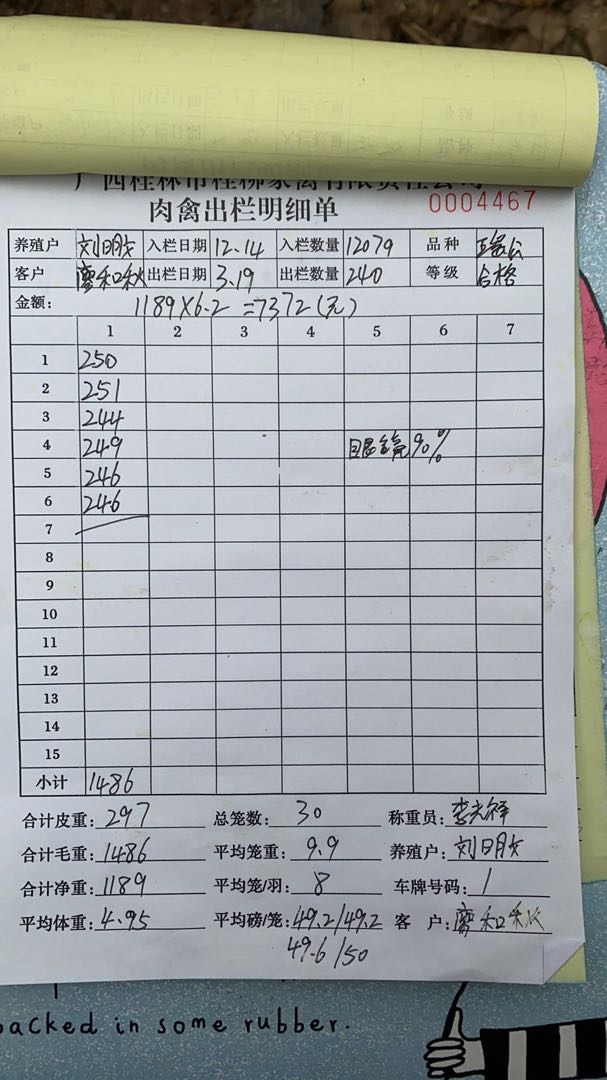 广西桂林市桂柳家禽有限责任公司
肉禽出栏明细单 0004467
养殖户 入栏日期 12.14 入栏数量 12079 品种
客户 廖和秋 出栏日期 3.19 出栏数量 240 等级 合格
金额: 1189×6.2=7372(元)
1 2 3 4 5 6 7
1 250
2 251
3 244
4 249 90%
5 246
6 246
7
8
9
10
11
12
13
14
15
小计 1486
合计皮重: 297 总笼数: 30 称重员: 李光祥
合计毛重: 1486 平均笼重: 9.9 养殖户:
合计净重: 1189 平均笼/羽: 8 车牌号码: 1
平均体重: 4.95 平均磅/笼: 49.2/49.2 客 户: 廖和秋
49.6/50
packed in some rubber.